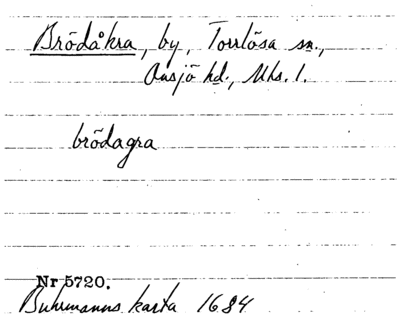 Brödåkra, by, Torrlösa sn.,
Onsjö hd., Mhs. l.
brödagra
Nr 5720.
Buhrmanns karta 1684